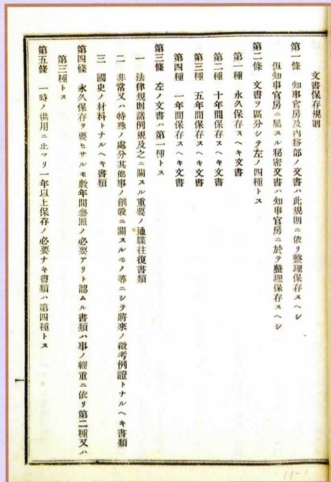 文書保存規則
第一條　知事官房及內務部ノ文書ハ此規則ニ依リ整理保存スヘシ
但知事官房ニ屬スル秘密文書ハ知事官房ニ於テ整理保存スヘシ
第二條　文書ヲ區分シテ左ノ四種トス
第一種　永久保存スヘキ文書
第二種　十年間保存スヘキ文書
第三種　五年間保存スヘキ文書
第四種　一年間保存スヘキ文書
第三條　左ノ文書ハ第一種トス
一　法律規則諸例規及之ニ關スル重要ノ通牒往復書類
二　非常又ハ特殊ノ處分其他事ノ創設ニ關スルモノ等ニシテ將來ノ徵考例證トナルヘキ書類
三　國史ノ材料トナルヘキ書類
第四條　永久保存ヲ要セサルモ數年間參照ノ必要アリト認ムル書類ハ事ノ輕重ニ依リ第二種又ハ
第三種トス
第五條　一時ノ供用ニ止マリ一年以上保存ノ必要ナキ書類ハ第四種トス
一